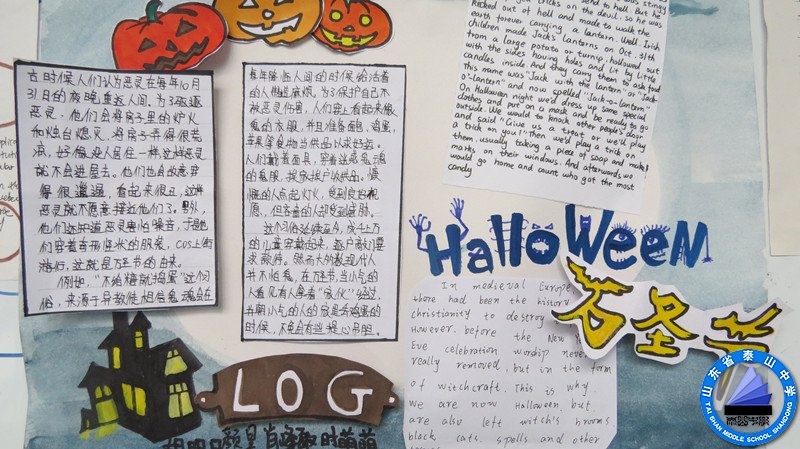 古时候人们认为恶灵在每年10月
31日的夜晚重返人间,为了驱逐
恶灵,他们会将房子里的炉火
和烛台熄灭,将房子弄得很荒
凉,好像没人居住一样这样恶灵
就不会进屋去。他们也会故意穿
得很邋遢,看起来很丑,这样
恶灵就不愿意接近他们了。另外,
他们还知道恶灵害怕噪音,于是他
们穿着奇形怪状的服装,cos上街
游行,这就是万圣节的由来。
例如,“不给糖就捣蛋”这个习
俗,来源于异教徒相信鬼魂会在
每年降临人间的时候给活着
的人制造麻烦。为了保护自己不
被恶灵伤害,人们穿上看起来像
鬼的衣服,并且准备面包,鸡蛋,
苹果等食物当供品以求好运。
人们戴着面具,穿着
的鬼服,挨家挨户收供品。慷
慨的人点起灯火,受到良好祝
愿,但吝啬的人却受到威胁。
这个习俗延续至今,成千上万
的儿童穿戴起来,逐户敲门要
求款待。然而大多数现代人
并不怕鬼,在万圣节,当小气的
人看见有人拿着
时候,不免会有些提心吊胆。
send to hell. But he
tricks on the devil, so he was
kicked out of hell and made to walk the
earth forever carrying a lantern. Well, Irish
children made Jack's lanterns on Oct. 31th
from a large potato or turnip, hollowed out
with the sides having holes and lit by little
candles inside. And they carry them to ask food
This name was "Jack with the lantern" or "Jack
O'-lantern" and now spelled "Jack-o-lantern"
On Halloween night we'd dress up some special
clothes and put on a mask and be ready to go
outside. We would to knock other people's door
and said "Give us a treat or we'll play
a trick on you!" then we'd play a trick on
them, usually taking a piece of soap and make
marks on their windows. And afterwards we
would go home and count who got the most
candy
Halloween
万圣节
In medieval Europe
there had been the history
christianity to destroy
However, before the New
Eve celebration worship never
really removed, but in the form
of witchcraft. This is why
we are now Halloween, but
are also left witch's broom,
black cats, spells and other
LOG
山东省泰山中学
TAI SHAN MIDDLE SCHOOL SHANDONG